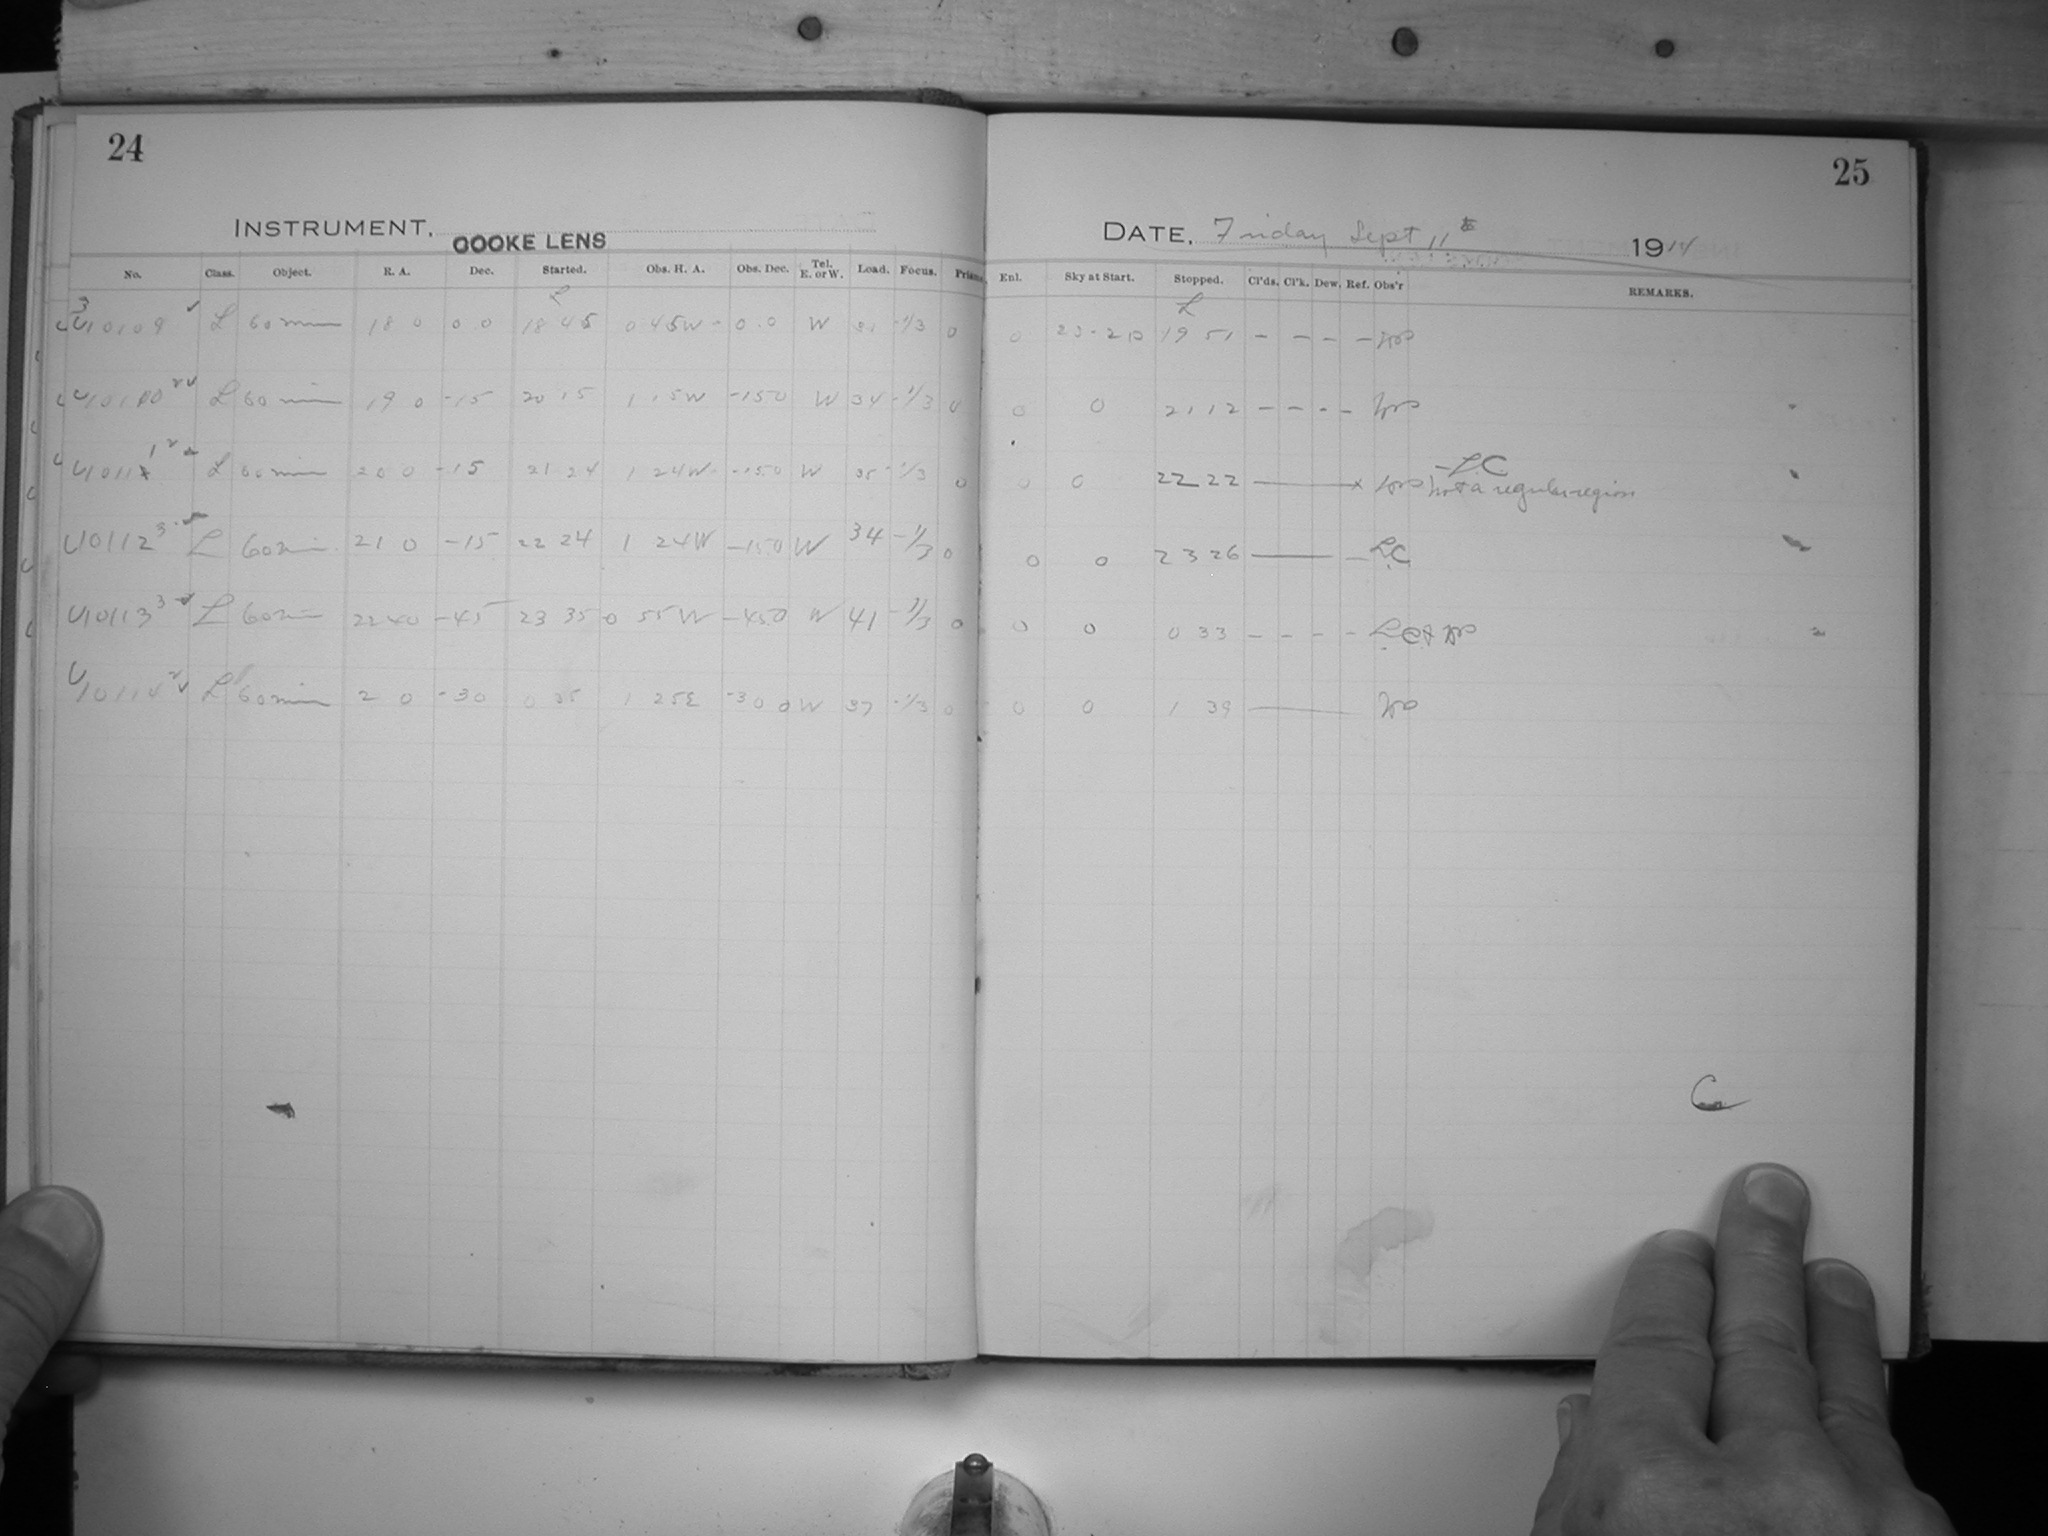 24
INSTRUMENT. COOKE LENS
No. Class. Object. R. A. Dec. Started. Obs. H. A. Obs. Dec. Tel. E. or W. Load. Focus. Prisms.
L
3
10109 L 60 min 18 0 0 0 18 45 0 45W 0.0 W -1/3 0
L 60 min 19 0 -15 20 15 1 15W -15 0 W 34 -1/3 0
L 60 min 20 0 -15 21 24 1 24W -15 0 W 35 -1/3 0
10112 3 L 60 min 21 0 -15 22 24 1 24W -15 0 W 34 -1/3 0
10113 3 L 60 min 22 40 -45 23 35 0 55W -45 0 W 41 -1/3 0
10114 2 L 60 min 2 0 -30 0 35 1 25E -30 0 W 37 -1/3 0
25
DATE. Friday Sept 11th 1914
Enl. Sky at Start. Stopped. Cl'ds. Cl'k. Dew. Ref. Obs'r REMARKS.
L
0 19 51 - - - -
0 0 21 12 - - - -
0 0 22 22 x -L.C. Not a regular region
0 0 23 26 - L.C.
0 0 0 33 - - - - L.C. &
0 0 1 39
C